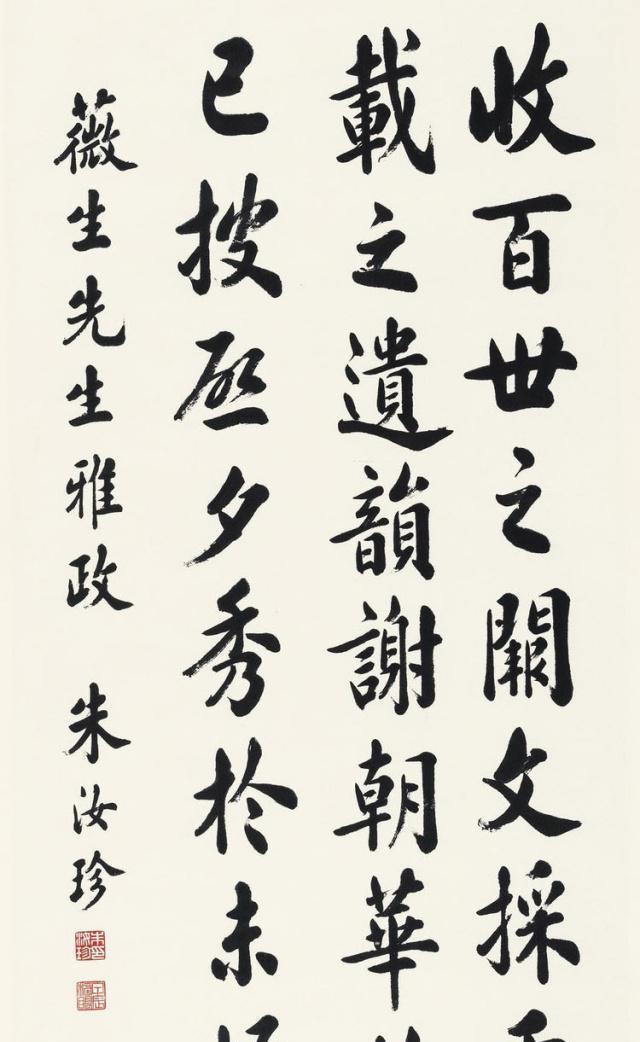 收百世之闕文採
載之遺韻謝朝華
已披啟夕秀於未
薇生先生雅政 朱汝珍